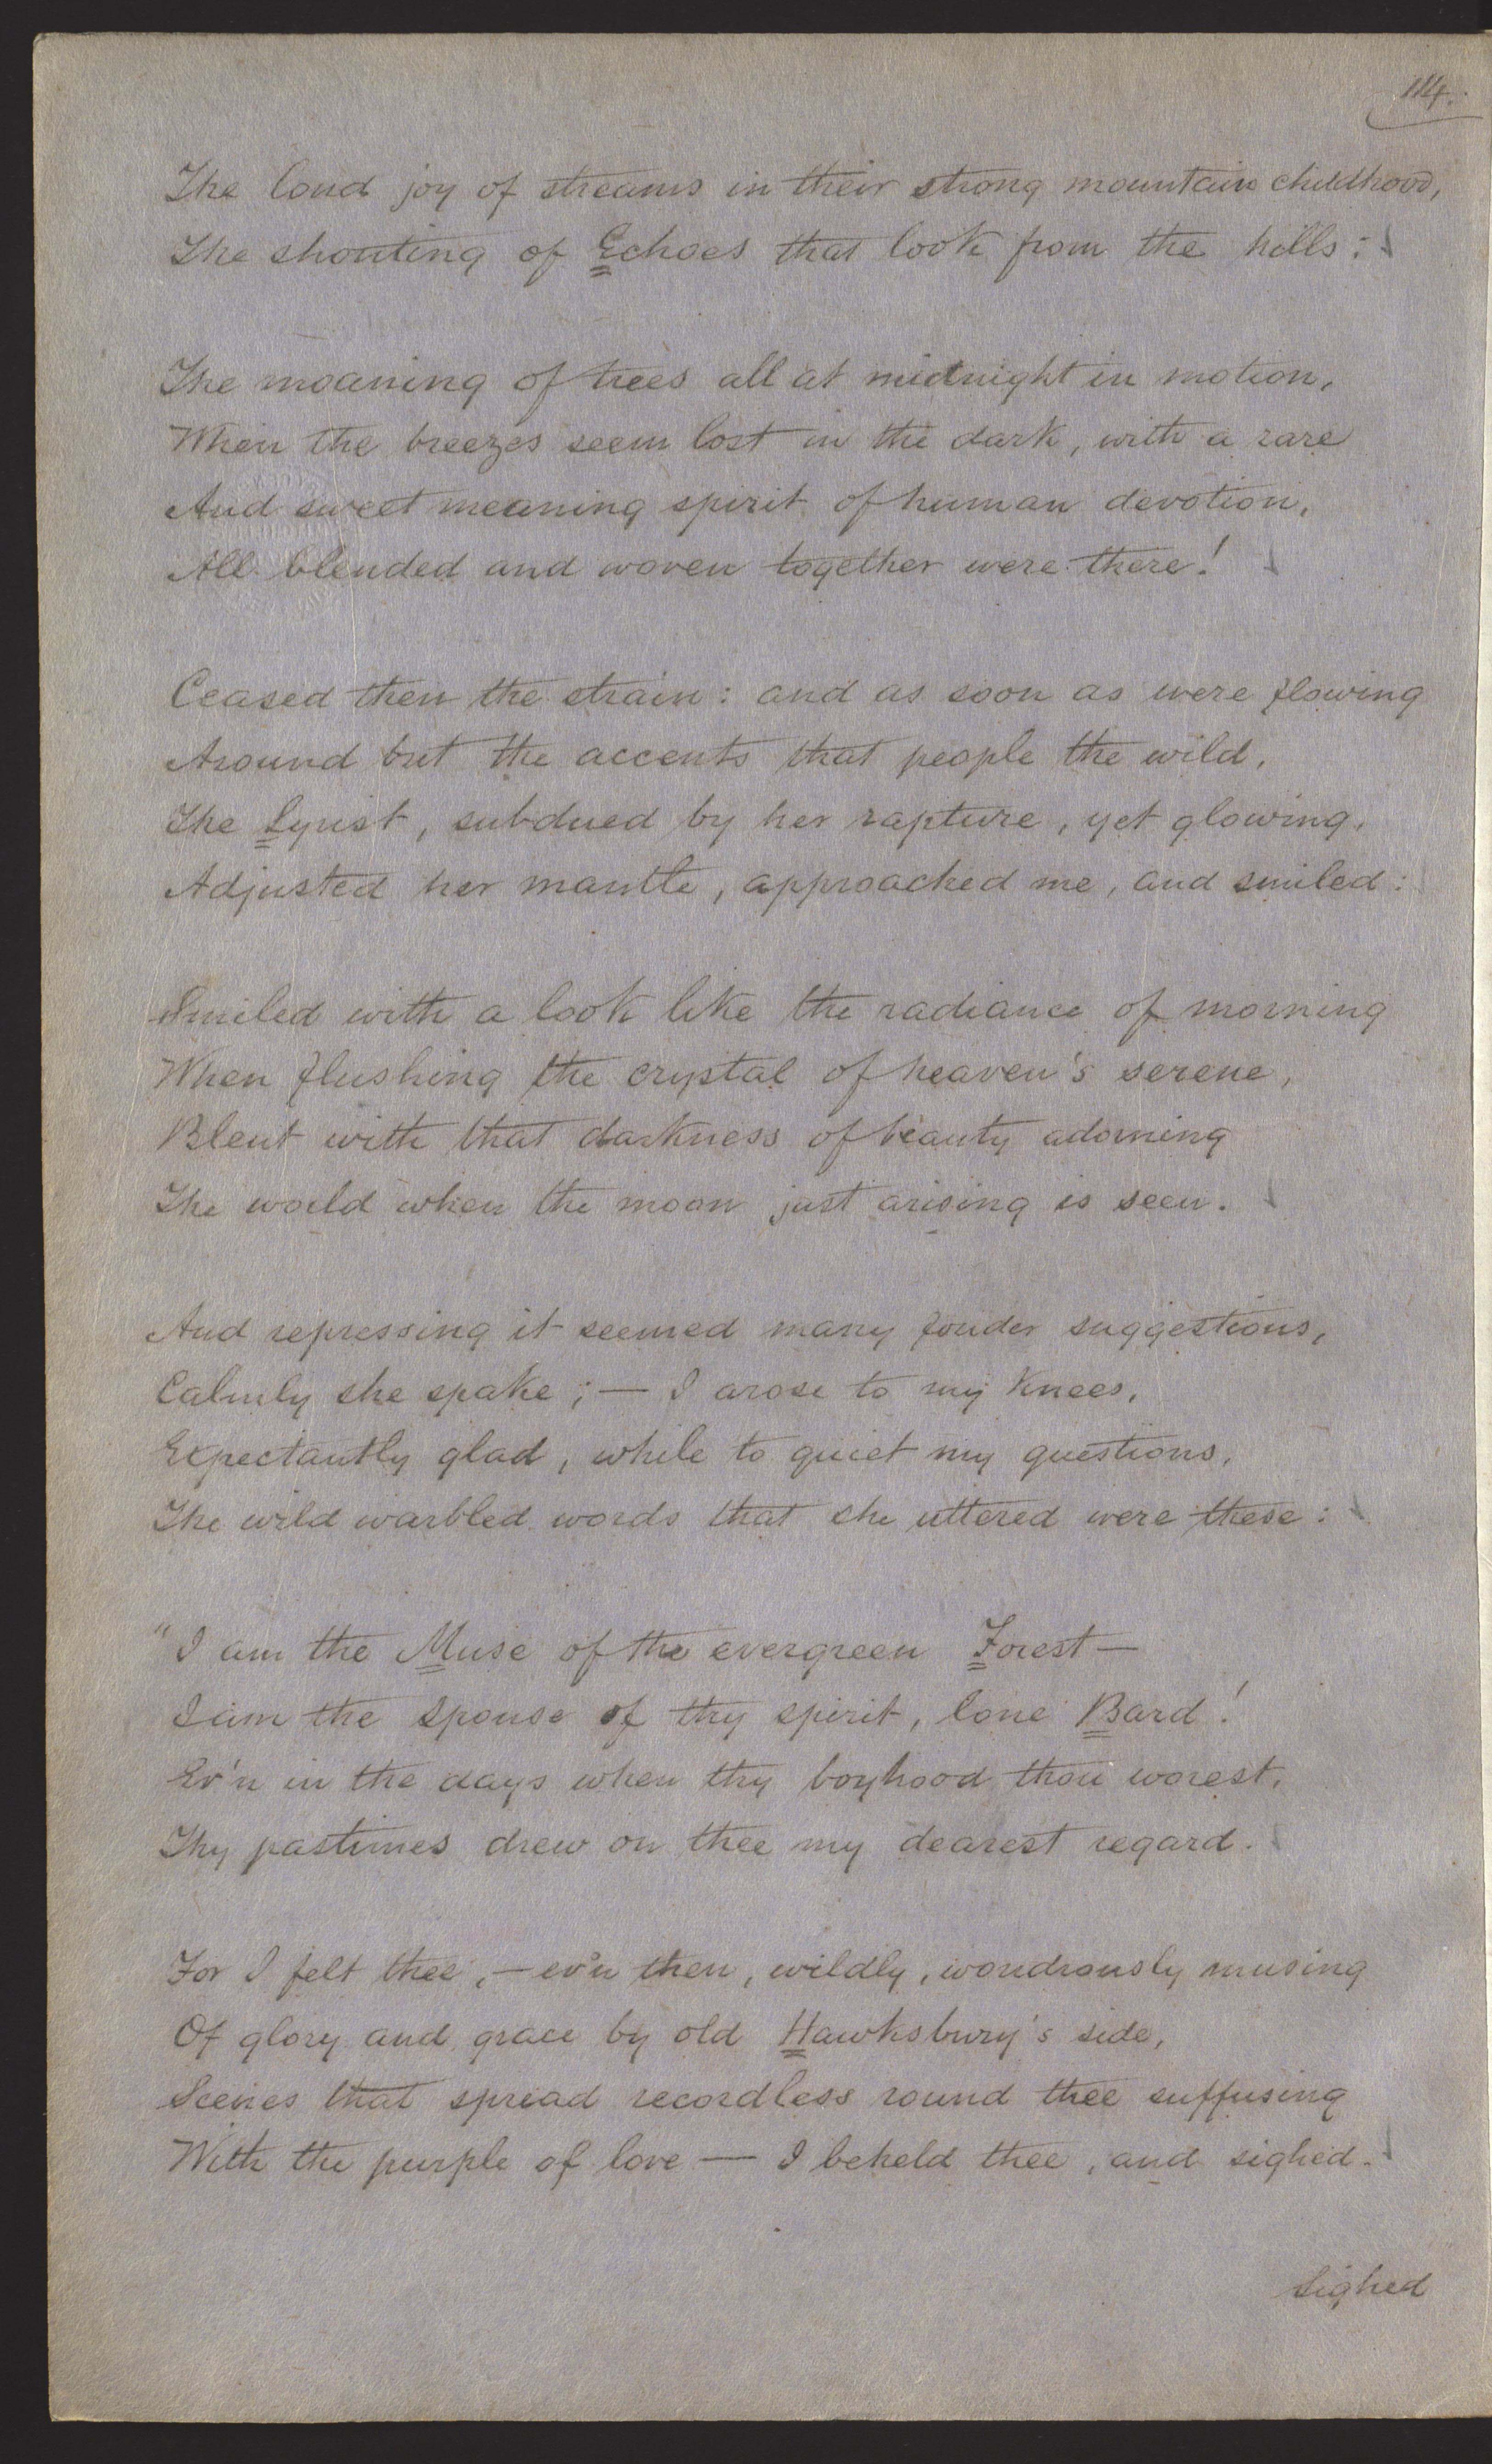 114.
The loud joy of streams in their strong mountain childhood,
The shouting of Echoes that look from the hills:
The moaning of trees all at midnight in motion,
When the breezes seem lost in the dark, with a rare
And sweet meaning spirit of human devotion,
All blended and woven together were there!
Ceased then the strain: and as soon as were flowing
Around but the accents that people the wild,
The Lyrist, subdued by her rapture, yet glowing,
Adjusted her mantle, approached me, and smiled:
Smiled with a look like the radiance of morning
When flushing the crystal of heaven's serene,
Blent with that darkness of beauty adorning
The world when the moon just arising is seen.
And repressing it seemed many fonder suggestions,
Calmly she spake; — I arose to my knees,
Expectantly glad, while to quiet my questions,
The wild warbled words that she uttered were these:
"I am the Muse of the evergreen Forest—
I am the Spouse of thy spirit, lone Bard!
Ev'n in the days when thy boyhood thou worest,
Thy pastimes drew on thee my dearest regard.
For I felt thee, — ev'n then, wildly, wondrously musing
Of glory and grace by old Hawksbury's side,
Scenes that spread recordless round thee suffusing
With the purple of love — I beheld thee, and sighed.
Sighed